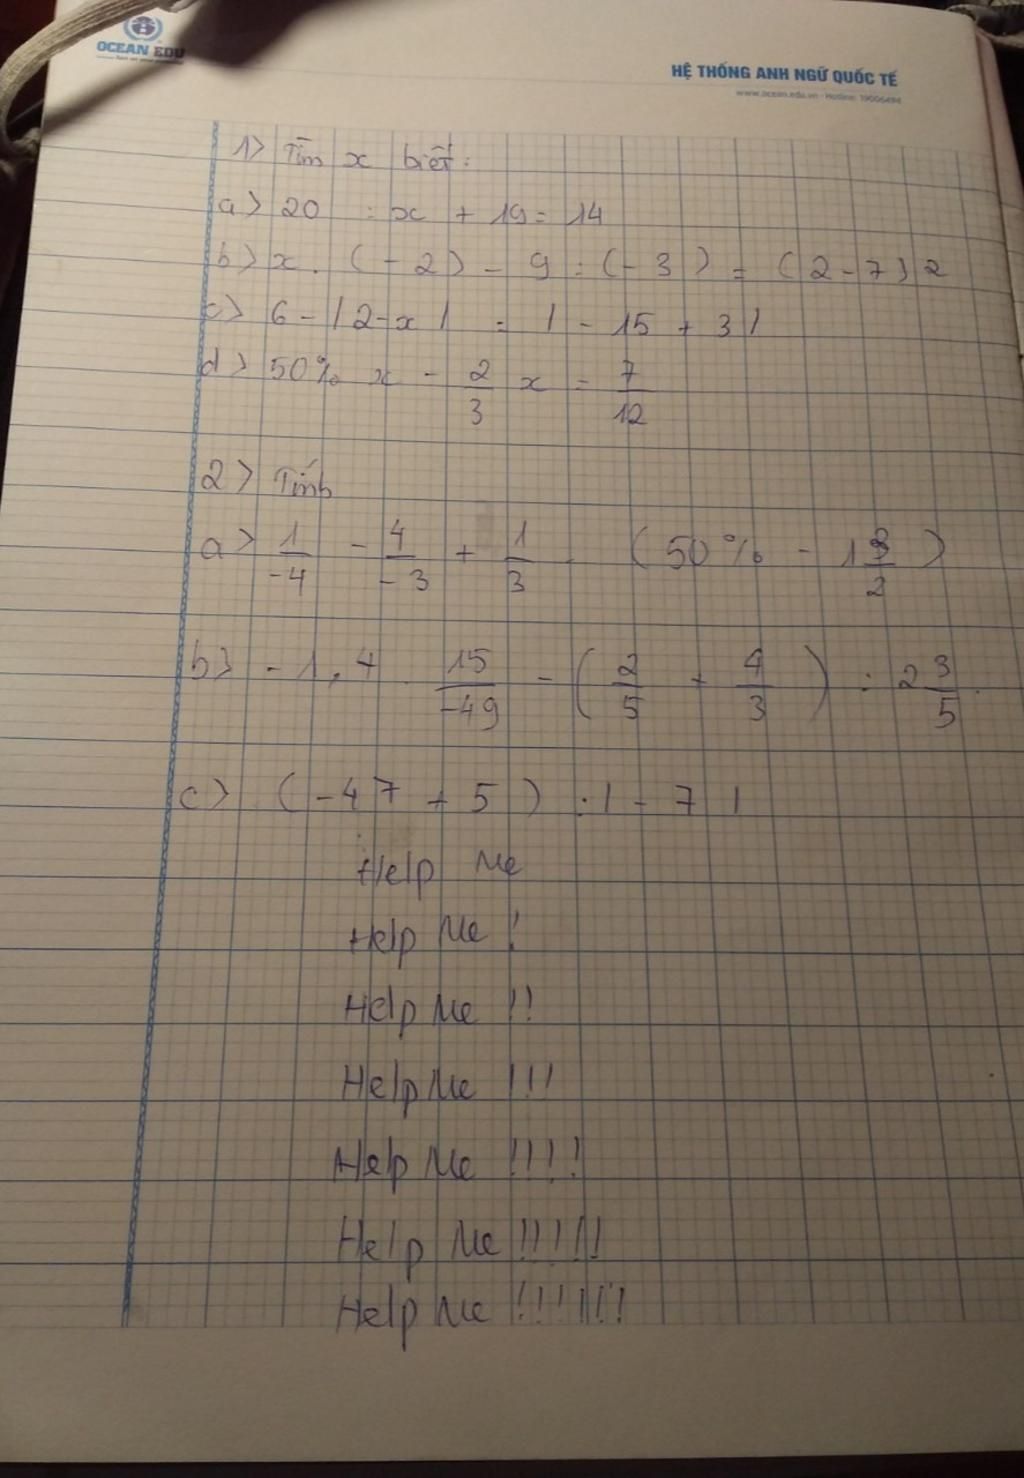 OCEAN EDU
HỆ THỐNG ANH NGỮ QUỐC TẾ
www.ocean.edu.vn - Hotline: 19006494
1> Tìm x biết:
a> 20 : x + 19 = 14
b> x . (-2) - 9 : (-3) = (2-7) 2
c> 6 - |2-x| = |-15 + 3|
d> 50% x - 2/3 x = 7/12
2> Tính
a> 1/-4 - 4/-3 + 1/3 . (50% - 1 3/2)
b> -1,4 . 15/-49 - (2/5 + 4/3) : 2 3/5.
c> (-47 + 5) : |-7|
Help Me
Help Me !
Help Me !!
Help Me !!!
Help Me !!!!
Help Me !!!!!
Help Me !!!!!!!